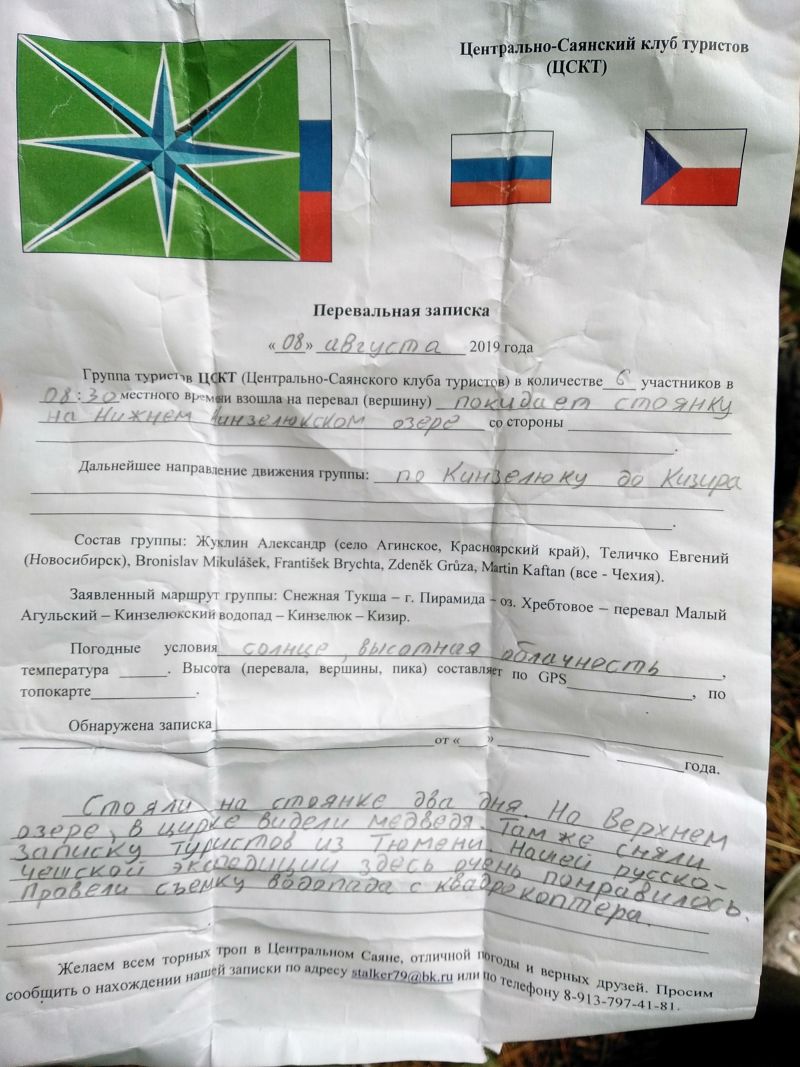 Центрально-Саянский клуб туристов
(ЦСКТ)
Перевальная записка
«08» августа 2019 года
Группа туристов ЦСКТ (Центрально-Саянского клуба туристов) в количестве 6 участников в
08:30 местного времени взошла на перевал (вершину) покидает стоянку
на Нижнем Кинзелюкском озере со стороны
Дальнейшее направление движения группы: по Кинзелюку до Кизира
Состав группы: Жуклин Александр (село Агинское, Красноярский край), Теличко Евгений
(Новосибирск), Bronislav Mikulášek, František Brychta, Zdeněk Grůza, Martin Kaftan (все - Чехия).
Заявленный маршрут группы: Снежная Тукша – г. Пирамида – оз. Хребтовое – перевал Малый
Агульский – Кинзелюкский водопад – Кинзелюк – Кизир.
Погодные условия солнце, высотная облачность,
температура ______. Высота (перевала, вершины, пика) составляет по GPS______________, по
топокарте____________.
Обнаружена записка
от «___» ____________ ________года.
Стояли на стоянке два дня. На Верхнем
озере, в цирке видели медведя. Там же сняли
записку туристов из Тюмени. Нашей русско-
чешской экспедиции здесь очень понравилось.
Провели съемку водопада с квадрокоптера.
Желаем всем торных троп в Центральном Саяне, отличной погоды и верных друзей. Просим
сообщить о нахождении нашей записки по адресу stalker79@bk.ru или по телефону 8-913-797-41-81.